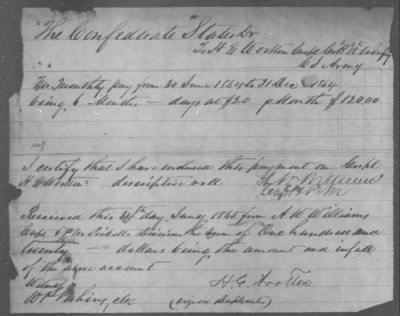 The Confederate States Dr
To H E Wootton Corpl Co
C S Army
For Monthly pay from 30 June 1864 to 31 Dec 1864
being 6 Months – days at $20 p Month $120.00
I certify that I have endorsed this payment on Corpl
H E Wootton descriptive roll
Received this day Jany 1865 from A W Williams
Capt & Division the sum of One hundred and
twenty — dollars being the amount and in full
of the above account
Witness
H. E. Wootton
(signed Duplicates)